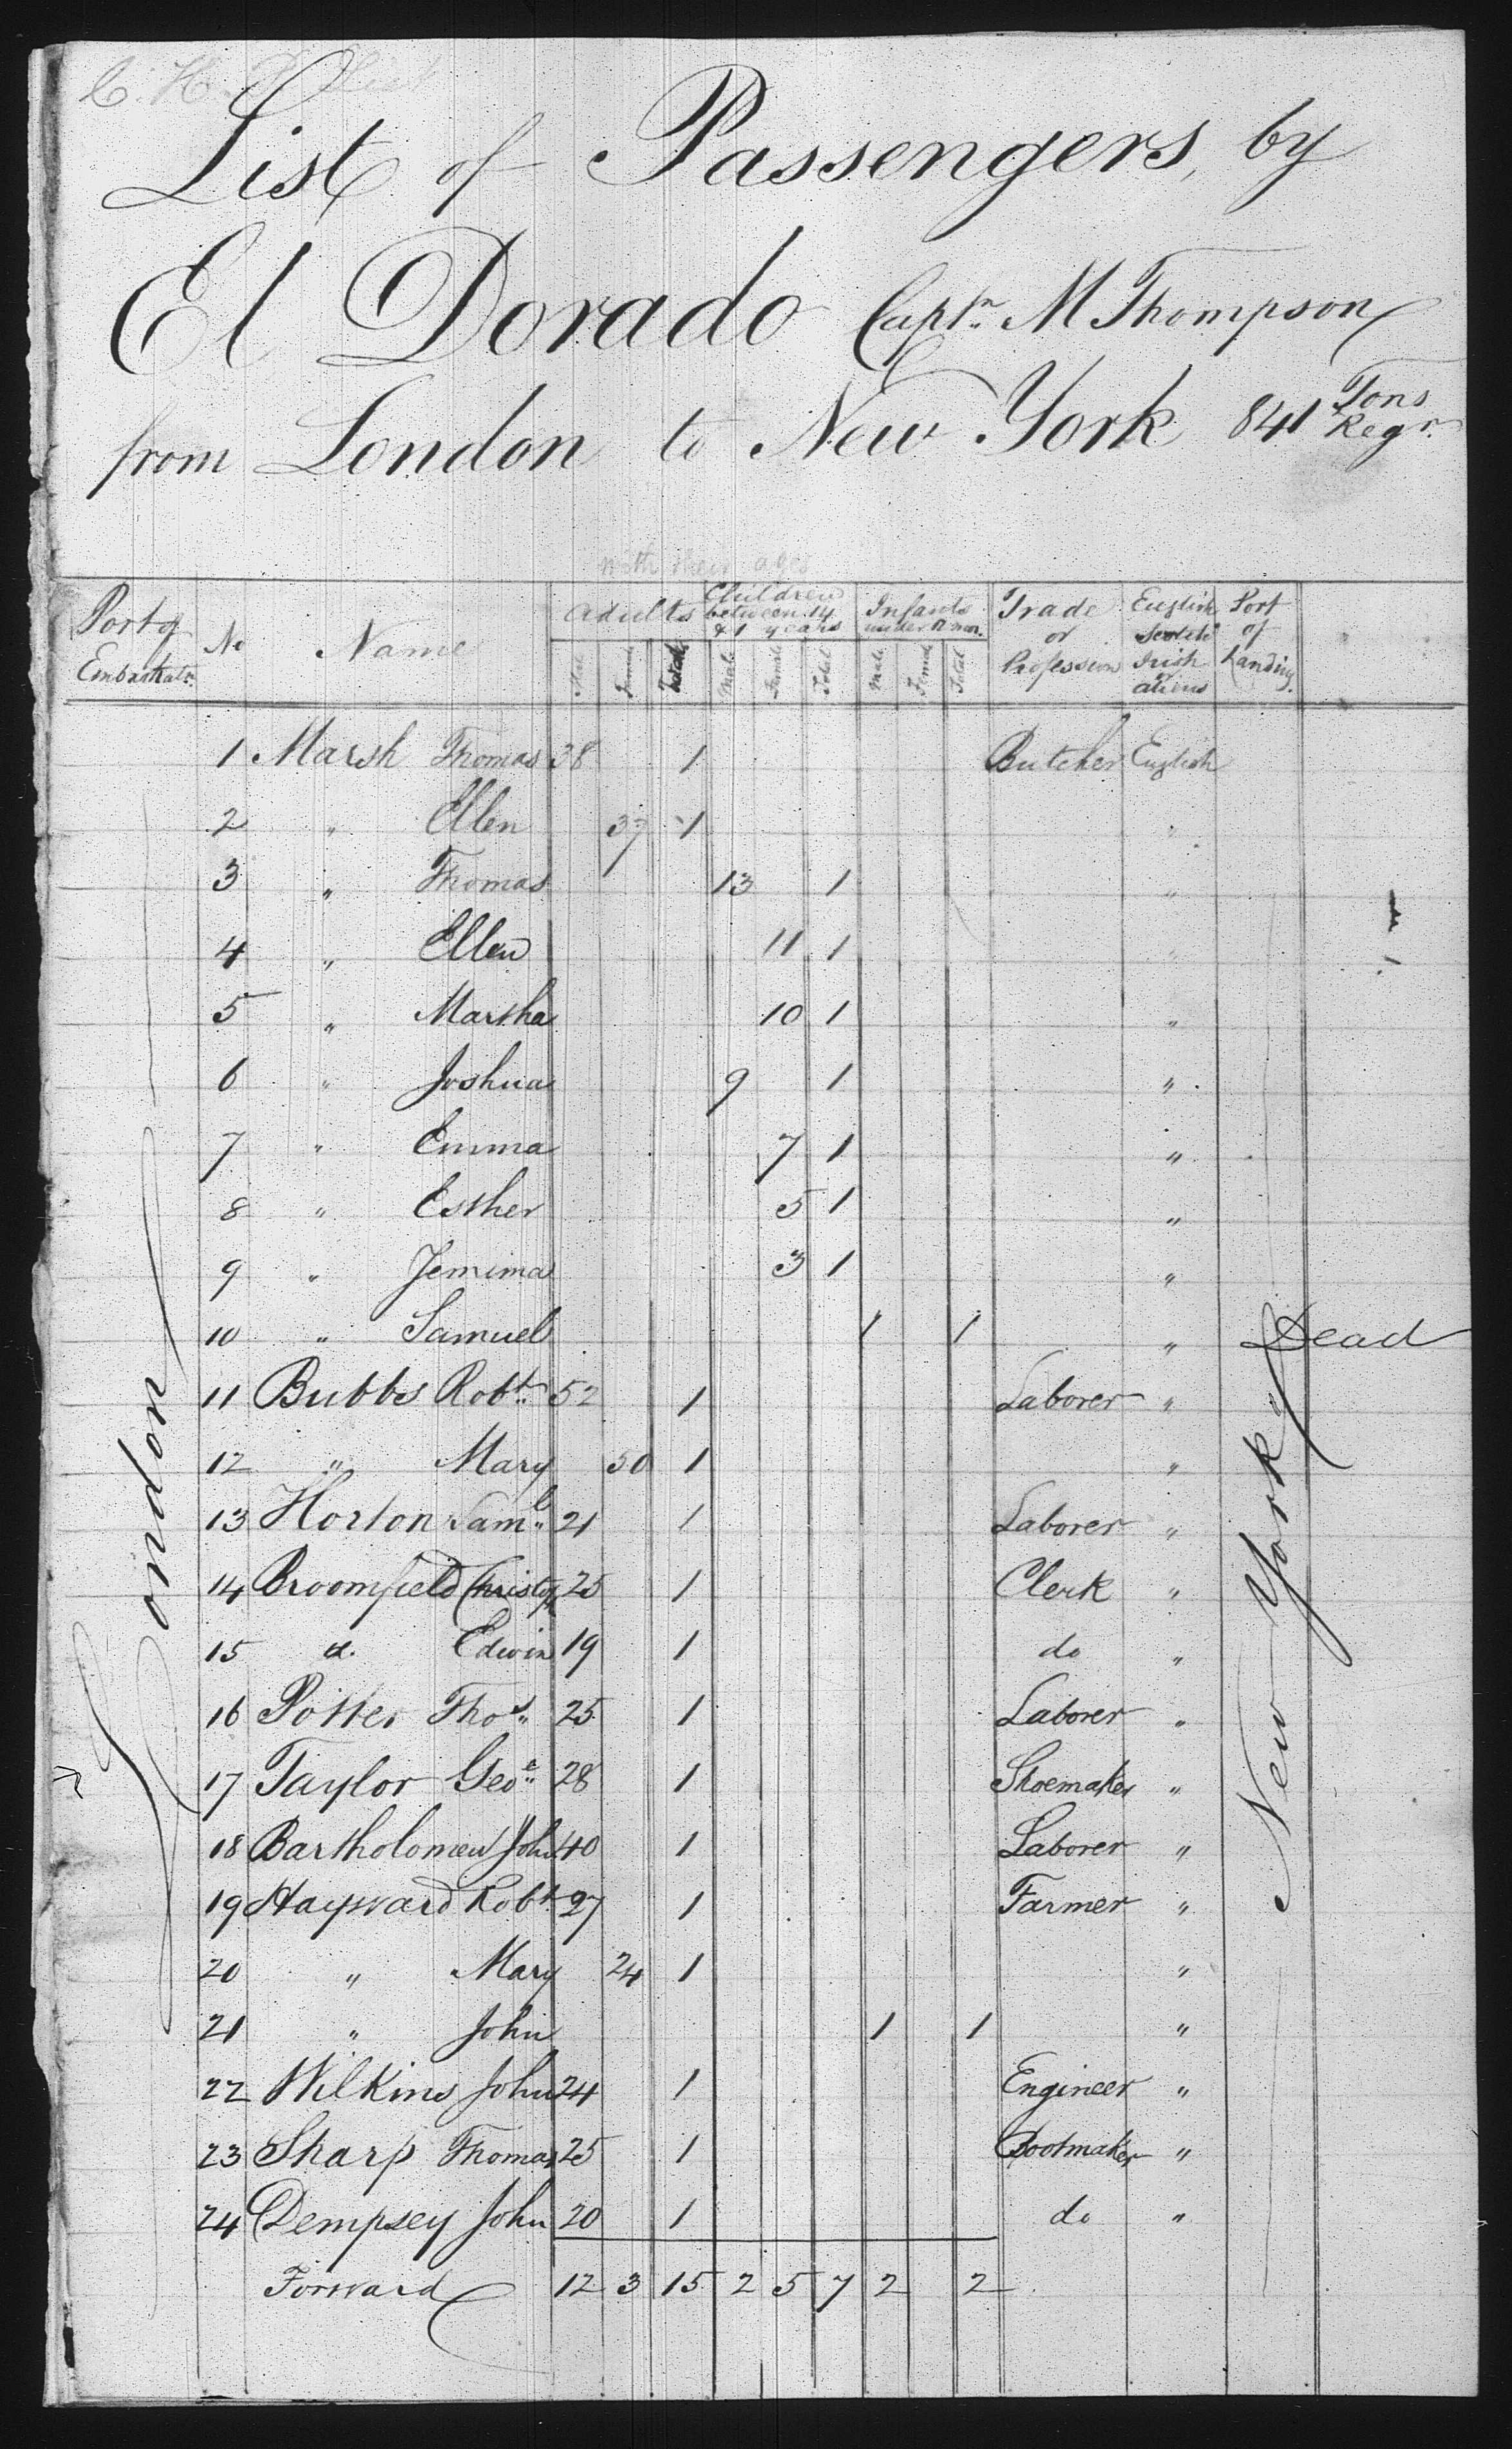 List of Passengers, by
El Dorado Captn. M Thompson
from London to New York 841 Tons Regr.
with their ages
Port of Embarkatn. No Name Adults Children between 14 & 1 years Infants under 12 mos. Trade or Profession English Scotch Irish or aliens Port of Landing.
Male Female Total Male Female Total Male Female Total
London
New York
1 Marsh Thomas 38 1 Butcher English
2 " Ellen 37 1 "
3 " Thomas 13 1 "
4 " Ellen 11 1 "
5 " Martha 10 1 "
6 " Joshua 9 1 "
7 " Emma 7 1 "
8 " Esther 5 1 "
9 " Jemima 3 1 "
10 " Samuel 1 1 " Dead
11 Bubbs Robt. 52 1 Laborer "
12 " Mary 50 1 "
13 Horton Saml. 21 1 Laborer "
14 Broomfield Christopr 25 1 Clerk "
15 d. Edwin 19 1 do "
16 Potter Thos. 25 1 Laborer "
17 Taylor Geoe. 28 1 Shoemaker "
18 Bartholomew John 40 1 Laborer "
19 Hayward Robt. 27 1 Farmer "
20 " Mary 24 1 "
21 " John 1 1 "
22 Wilkins John 24 1 Engineer "
23 Sharp Thomas 25 1 Bootmaker "
24 Dempsey John 20 1 do "
Forward 12 3 15 2 5 7 2 2